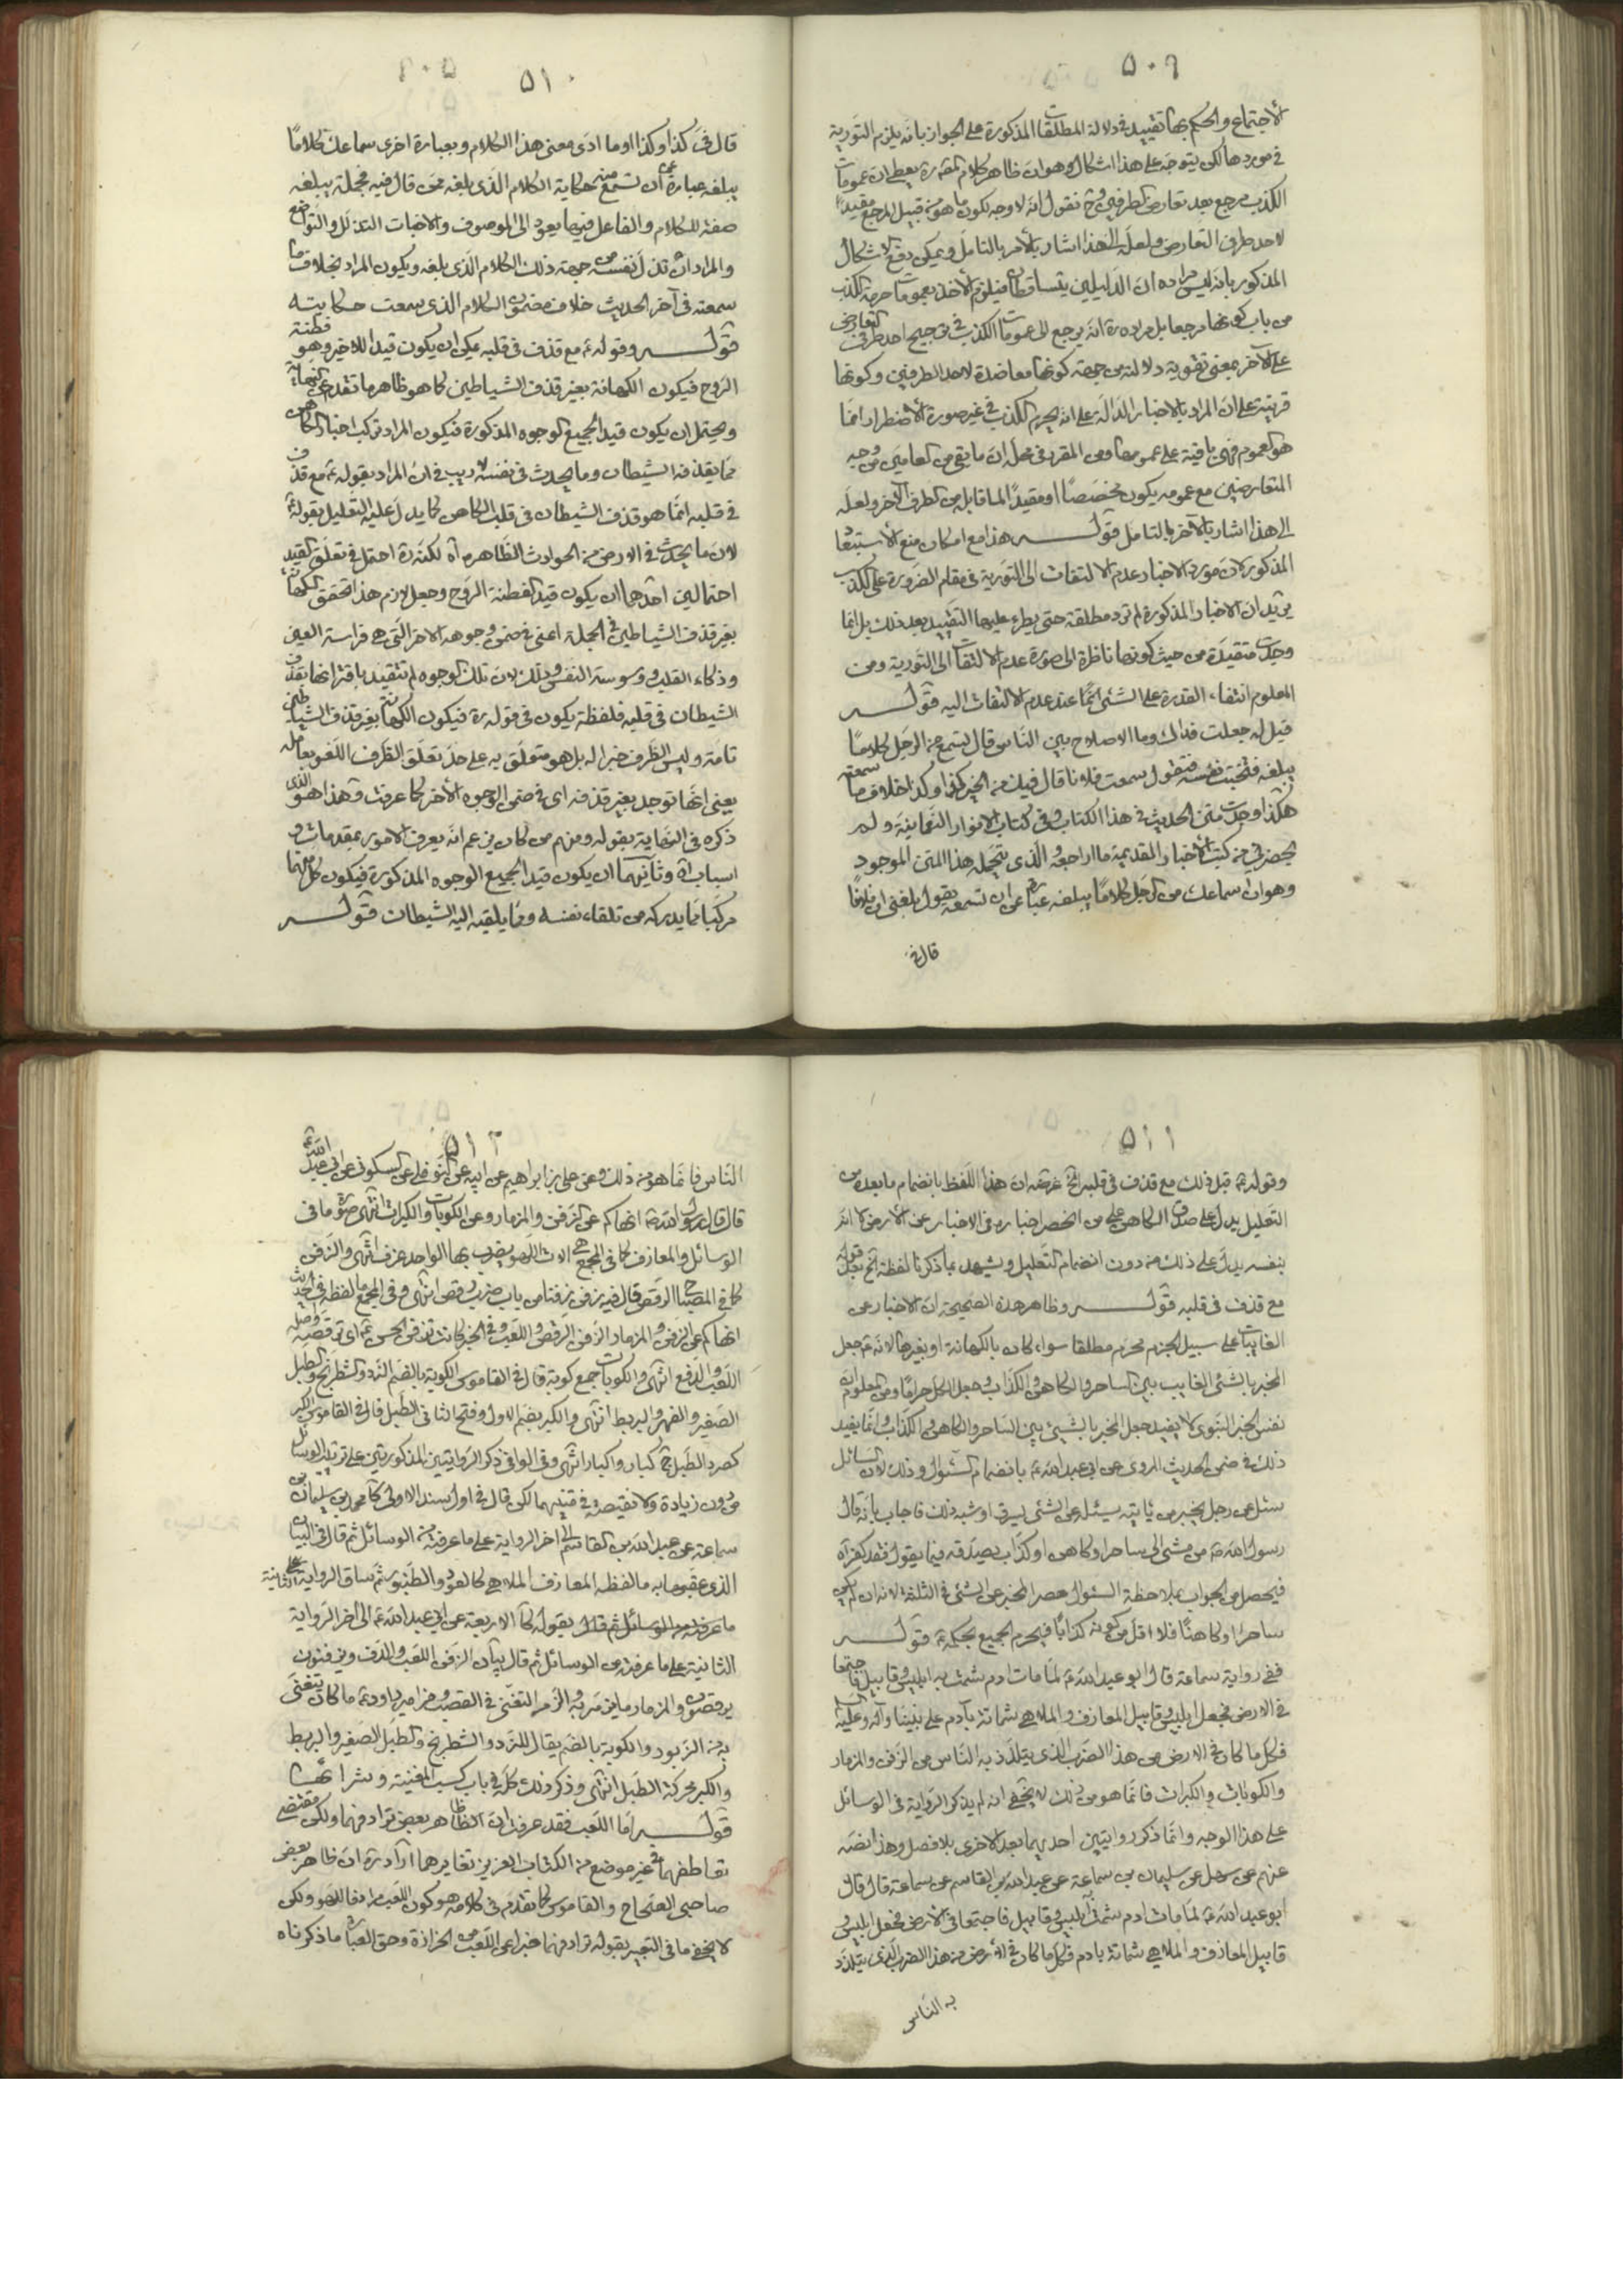 ٥٠٩
الاجتماع والحكم بها تقييد في دلالة المطلقات المذكورة على الجواز بانه يلزم التورية
في موردها لكن يتوجه على هذا اشكال وهو ان ظاهر كلام المقرر يعطى ان عمومات
الكذب مرجع بعد تعارض الطرفين وح نقول انه لا وجه لكون ما هو من قبيل المرجع مقيدا
لاحد طرفي التعارض ولعله الى هذا اشار بالامر بالتامل ويمكن دفع الاشكال
المذكور بانه ليس مراده ان الدليلين يتساقطان فيلزم الاخذ بعمومات حرمة الكذب
من باب كونها مرجعا بل مراده ره انه يرجع الى عمومات الكذب في ترجيح احد طرفي التعارض
على الآخر بمعنى تقوية دلالته من جهة كونها معاضدة لاحد الطرفين وكونها
قرينة على ان المراد بالاخبار الدالة على انه يحرم الكذب في غير صورة الاضطرار انما
هو العموم فهي باقية على عمومها ومن المقرر في محله ان ما بقى من العامين من وجه
المتعارضين مع عمومه يكون مخصصا او مقيدا لما قابل من الطرف الآخر ولعله
الى هذا اشار بالآخر بالتامل قوله هذا مع امكان منع الاستبعاد
المذكور لان مورد الاخبار عدم الالتفات الى التورية في مقام الضرورة على الكذب
يريد ان الاخبار المذكورة لم ترد مطلقة حتى يطرء عليها التقييد بعد ذلك بل انما
وجدت متقيدة من حيث كونها ناظرة الى صورة عدم الالتفات الى التورية ومن
المعلوم انتفاء القدرة على الشئ عند عدم الالتفات اليه قوله
قيل له جعلت فداك وما الاصلاح بين الناس قال تسمع من الرجل كلاما
يبلغه فتخبث نفسه فتقول سمعت فلانا قال فيك من الخير كذا وكذا خلاف ما سمعته
هكذا وجدت متن الحديث في هذا الكتاب وفي كتاب الانوار النعمانية ولم
يحضرني من كتب الاخبار المقدمة ما اراجعه والذي يتحمله هذا المتن الموجود
وهو ان سماعك من الرجل كلاما يبلغه عبارة عن ان تسمعه يقول بلغني ان فلانا
قال في
٥١٠
قال في كذا وكذا او ما ادى معنى هذا الكلام وبعبارة اخرى سماعك كلاما
يبلغه عبارة عن ان تسمع منه حكاية الكلام الذي بلغه ممن قال فيه فجملة يبلغه
صفة للكلام والفاعل فيها يعود الى الموصوف والاخبات التذلل والتواضع
والمراد ان تذلل نفسه من جهة ذلك الكلام الذي بلغه ويكون المراد بخلاف ما
سمعته في آخر الحديث خلاف مضمون الكلام الذي سمعت حكايته
قوله وقوله ع مع قذف في قلبه يمكن ان يكون قيدا للاخير وهو فطنة
الروح فيكون الكهانة بغير قذف الشياطين كما هو ظاهر ما تقدم عن النهاية
ويحتمل ان يكون قيد الجميع الوجوه المذكورة فيكون المراد تركب اخبار الكاهن
مما يقذفه الشيطان وما يحدث في نفسه لا ريب في ان المراد بقوله ع مع قذف
في قلبه انما هو قذف الشيطان في قلب الكاهن كما يدل عليه التعليل بقوله ع
لان ما يحدث في الارض من الحوادث الظاهرة اه لكنه ره احتمل في تعلق القيد
احتمالين احدهما ان يكون قيد الفطنة الروح وجعل لازم هذا تحقق الكهانة
بغير قذف الشياطين في الجملة اعنى في ضمن وجوهه الاخر التي هي فراسة العين
وذكاء القلب ووسوسة النفس وذلك لان تلك الوجوه لم تتقيد باقترانها بقذف
الشيطان في قلبه فلفظة يكون في قوله ره فيكون الكهانة بغير قذف الشياطين
تامة وليس الظرف خبرا له بل هو متعلق به على حد تعلق الظرف اللغو بعامله
يعنى انها توجد بغير قذفه اى في ضمن الوجوه الأخر كما عرفت وهذا هو الذي
ذكره في النهاية بقوله ومنهم من كان يزعم انه يعرف الامور بمقدمات و
اسباب اه وثانيهما ان يكون قيد الجميع الوجوه المذكورة فيكون كل منهما
مركبا مما يدركه من تلقاء نفسه ومما يلقيه اليه الشيطان قوله
٥١١
وقوله ع قبل ذلك مع قذف في قلبه الخ غرضه ان هذا اللفظ بانضمام ما بعده من
التعليل يدل على صدق الكاهن على من انحصر اخباره في الاخبار عن الارض كما انه
بنفسه يدل على ذلك من دون انضمام التعليل ويشهد بما ذكرنا لفظة الخ بعد قوله
مع قذف في قلبه قوله وظاهر هذه الصحيحة ان الاخبار عن
الغائبات على سبيل الجزم محرم مطلقا سواء كان بالكهانة او بغيرها لانه ع جعل
المخبر بالشئ الغايب بين الساحر والكاهن والكذاب وجعل الكل حراما ومن المعلوم ان
نفس الخبر النبوى لا يفيد جعل المخبر بالشئ بين الساحر والكاهن والكذاب وانما يفيد
ذلك في ضمن الحديث المروى عن ابى عبد الله ع بانضمام السئوال وذلك لان السائل
سئل عن رجل يخبر من يأتيه يسئله عن الشئ يسرق او شبه ذلك فاجاب بانه قال
رسول الله ص من مشى الى ساحر او كاهن او كذاب يصدقه فيما يقول فقد كفر آه
فيحصل من الجواب بملاحظة السئوال حصر المخبر عن الشئ في الثلثة لانه ان لم يكن
ساحرا وكاهنا فلا اقل من كونه كذابا فيحرم الجميع بحكمه ع قوله
ففي رواية سماعة قال ابو عبد الله ع لما مات ادم شمت به ابليس وقابيل فاجتمعا
في الارض فجعل ابليس وقابيل المعازف والملاهي شماتة بآدم على نبينا وآله وعليه السلام
فكل ما كان في الارض من هذا الضرب الذي يتلذذ به الناس من الزفن والمزمار
والكوبات والكبرات فانما هو من ذلك لا يخفى انه لم يذكر الرواية في الوسائل
على هذا الوجه وانما ذكر روايتين احديهما بعد الاخرى بلا فصل وهذا نصه
عنهم عن سهل عن سليمان بن سماعة عن عبد الله بن القاسم عن سماعة قال قال
ابو عبد الله ع لما مات ادم شمت به ابليس وقابيل فاجتمعا في الارض فجعل ابليس و
قابيل المعازف والملاهي شماتة بادم فكل ما كان في الارض من هذا الضرب الذي يتلذذ
به الناس
٥١٢
الناس فانما هو من ذلك وعن على بن ابراهيم عن ابيه عن النوفلي عن السكوني عن ابي عبد الله ع
قال قال رسول الله ص انهاكم عن الزفن والمزمار وعن الكوبات والكبرات انتهى صورة ما في
الوسائل والمعازف كما في المجمع هي الات اللهو يضرب بها الواحد عزف انتهى والزفن
كما في المصباح الرقص قال فيه زفن زفنا من باب ضرب رقص انتهى وفي المجمع ما لفظه في الحديث
انهاكم عن الزفن والمزمار الزفن الرقص واللعب وفي الخبر كانت تزفن الحسن ع اى ترقصه واصله
اللعب والدفع انتهى والكوبات جمع كوبة قال في القاموس الكوبة بالضم النرد والشطرنج والطبل
الصغير والفهر والبربط انتهى والكبر بضم الاول وفتح الثاني الطبل قال في القاموس الكبر
كصرد الطبل ج كبار واكبار انتهى وفي الوافي ذكر الروايتين المذكورتين على ترتيب الوسائل
من دون زيادة ولا نقيصة في متنيهما لكن قال في اول سند الاولى كا محمد بن سليمان بن
سماعة عن عبد الله بن القاسم الى اخر الرواية على ما عرفته من الوسائل ثم قال في البيان
الذي عقبهما به ما لفظه المعازف الملاهي كالعود والطنبور ثم ساق الرواية الثانية على
ما عرفته من الوسائل ثم قال بقوله كا الاربعة عن ابي عبد الله ع الى اخر الرواية
الثانية على ما عرفته من الوسائل ثم قال بيان الزفن اللعب والدف ويزفنون
يرقصون والمزمار ما يزمر به والزمر التغنى في القصب ومزامير داود ع ما كان يتغنى
به من الزبور والكوبة بالضم يقال للنرد والشطرنج والطبل الصغير والبربط
والكبر محركة الطبل انتهى وذكر ذلك كله في باب كسب المغنية وشرائها
قوله اما اللعب فقد عرفت ان الظاهر بعض ترادفهما ولكن مقتضى
تعاطفهما في غير موضع من الكتاب العزيز تغايرهما اراد ره ان ظاهر بعض
صاحبى الصحاح والقاموس كما تقدم في كلامه هو كون اللعب مرادفا للهو ولكن
لا يخفى ما في التعبير بقوله ترادفهما خبرا عن اللعب من الحزازة وحق العبارة ما ذكرناه